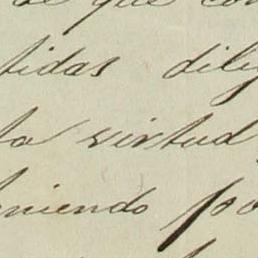 de que con
tidas dilig
ta virtud
eniendo po